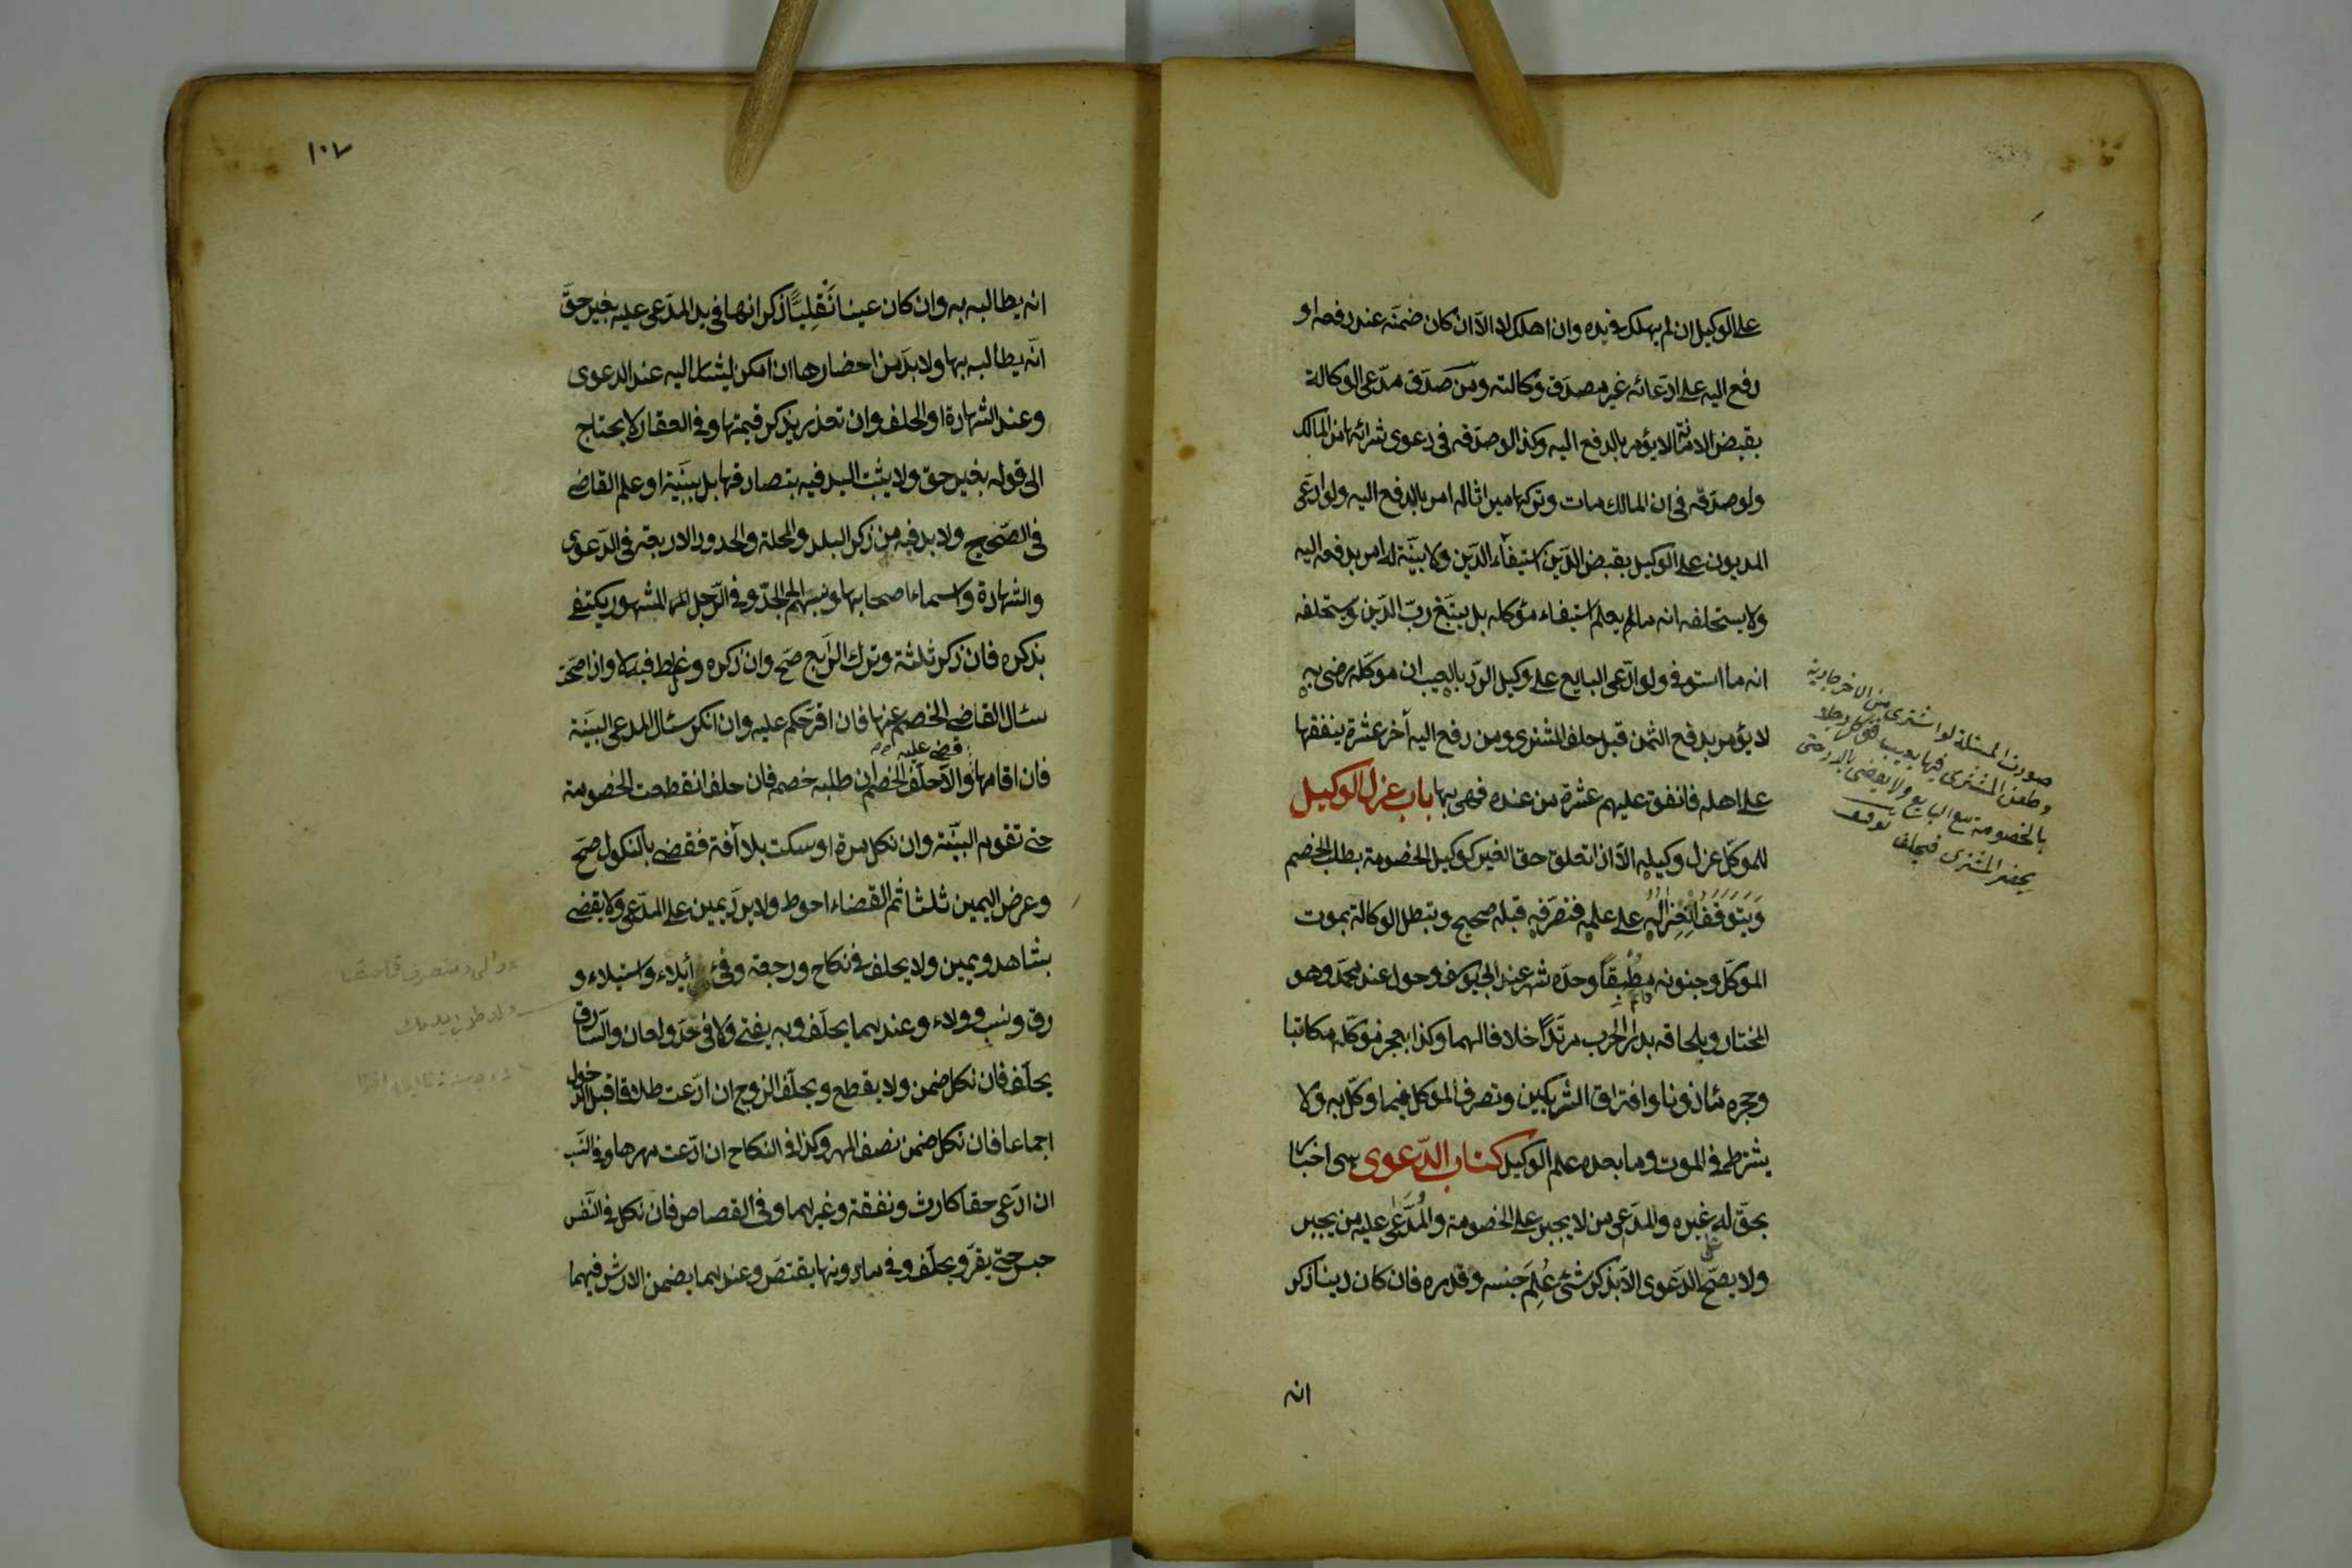 على الوكيل ان لم يهلك فى يده وان هلك لا الا ان كان ضمنه عند دفعه او
دفع اليه على ادعائه غير مصدق وكالته ومن صدق مدعى الوكالة
بقبض الامانة لا يؤمر بالدفع اليه وكذا لو صدقه فى دعوى شرائها من المالك
ولو صدقه فى ان المالك مات وتركها ميراثا له امر بالدفع اليه ولو ادعى
المديون على الوكيل بقبض الدين استيفاء الدين ولا بينة له امر بدفعه اليه
ولا يستحلفه انه ما لم يعلم استيفاء موكله بل يتبع رب الدين ويستحلفه
انه ما استوفى ولو ادعى البايع على وكيل الرد بالعيب ان موكله رضى به
لا يؤمر بدفع الثمن قبل حلف المشترى ومن دفع اليه آخر عشرة ينفقها
على اهله فانفق عليهم عشرة من عنده فهى بها باب عزل الوكيل
للموكل عزل وكيله الا اذا تعلق حق الغير كوكيل الخصومة بطلب الخصم
ويتوقف انعزاله على علمه فتصرفه قبله صحيح وتبطل الوكالة بموت
الموكل وجنونه مطبقا وحده شهر عند ابى يوسف وحول عند محمد وهو
المختار وبلحاقه بدار الحرب مرتدا خلافا لهما وكذا بعجز موكله مكاتبا
وحجره مأذونا وافتراق الشريكين وتصرف الموكل فيما وكل به ولا
يشترط فى الموت وما بعده علم الوكيل كتاب الدعوى هى اخبار
بحق له على غيره والمدعى من لا يجبر على الخصومة والمدعى عليه من يجبر
ولا يصح الدعوى الا بذكر شئ علم جنسه وقدره فان كان دينا ذكر
انه
صورت المسئلة لو اشترى من الآخر جارية
وطعن المشترى فيها بعيب فوكل رجلا
بالخصومة مع البايع ولا يقضى بالرد حتى
يحضر المشترى فيحلف
١٠٧
انه يطالبه به وان كان عينا نقليا ذكر انها فى يد المدعى عليه بغير حق
انه يطالبه بها ولا بد من احضارها ان امكن ليشار اليه عند الدعوى
وعند الشهادة او الحلف وان تعذر يذكر قيمتها وفى العقار لا يحتاج
الى قوله بغير حق ولا يثبت اليد فيه بتصادقهما بل ببينة او علم القاضى
فى الصحيح ولا بد فيه من ذكر البلد والمحلة والحدود الاربعة فى الدعوى
والشهادة واسماء اصحابها ونسبهم الى الجد وفى الرجل المشهور يكتفى
بذكره فان ذكر ثلثة وترك الرابع صح وان ذكره وغلط فيه لا واذا صحت
سئال القاضى الخصم عنها فان اقر حكم عليه وان انكر سئال المدعى البينة
فان اقامها قضى عليه والا حلف الخصم ان طلبه خصمه فان حلف انقطعت الخصومة
حتى تقوم البينة وان نكل مرة او سكت بلا آفة فقضى بالنكول صح
وعرض اليمين ثلثا ثم القضاء احوط ولا يرد يمين على المدعى ولا يقضى
بشاهد ويمين ولا يحلف فى نكاح ورجعة وفئ ايلاء واستيلاء و
رق ونسب وولاء وعندهما يحلف وبه يفتى ولا فى حد ولعان والسارق
يحلف فان نكل ضمن ولا يقطع ويحلف الزوج ان ادعت طلاقا قبل الدخول
اجماعا فان نكل ضمن نصف المهر وكذا فى النكاح ان ادعت مهرها وفى النسب
ان ادعى حقا كارث ونفقة وغيرهما وفى القصاص فان نكل فى النفس
حبس حتى يقر ويحلف وفى ما دونها يقتص وعندهما يضمن الارش فيهما